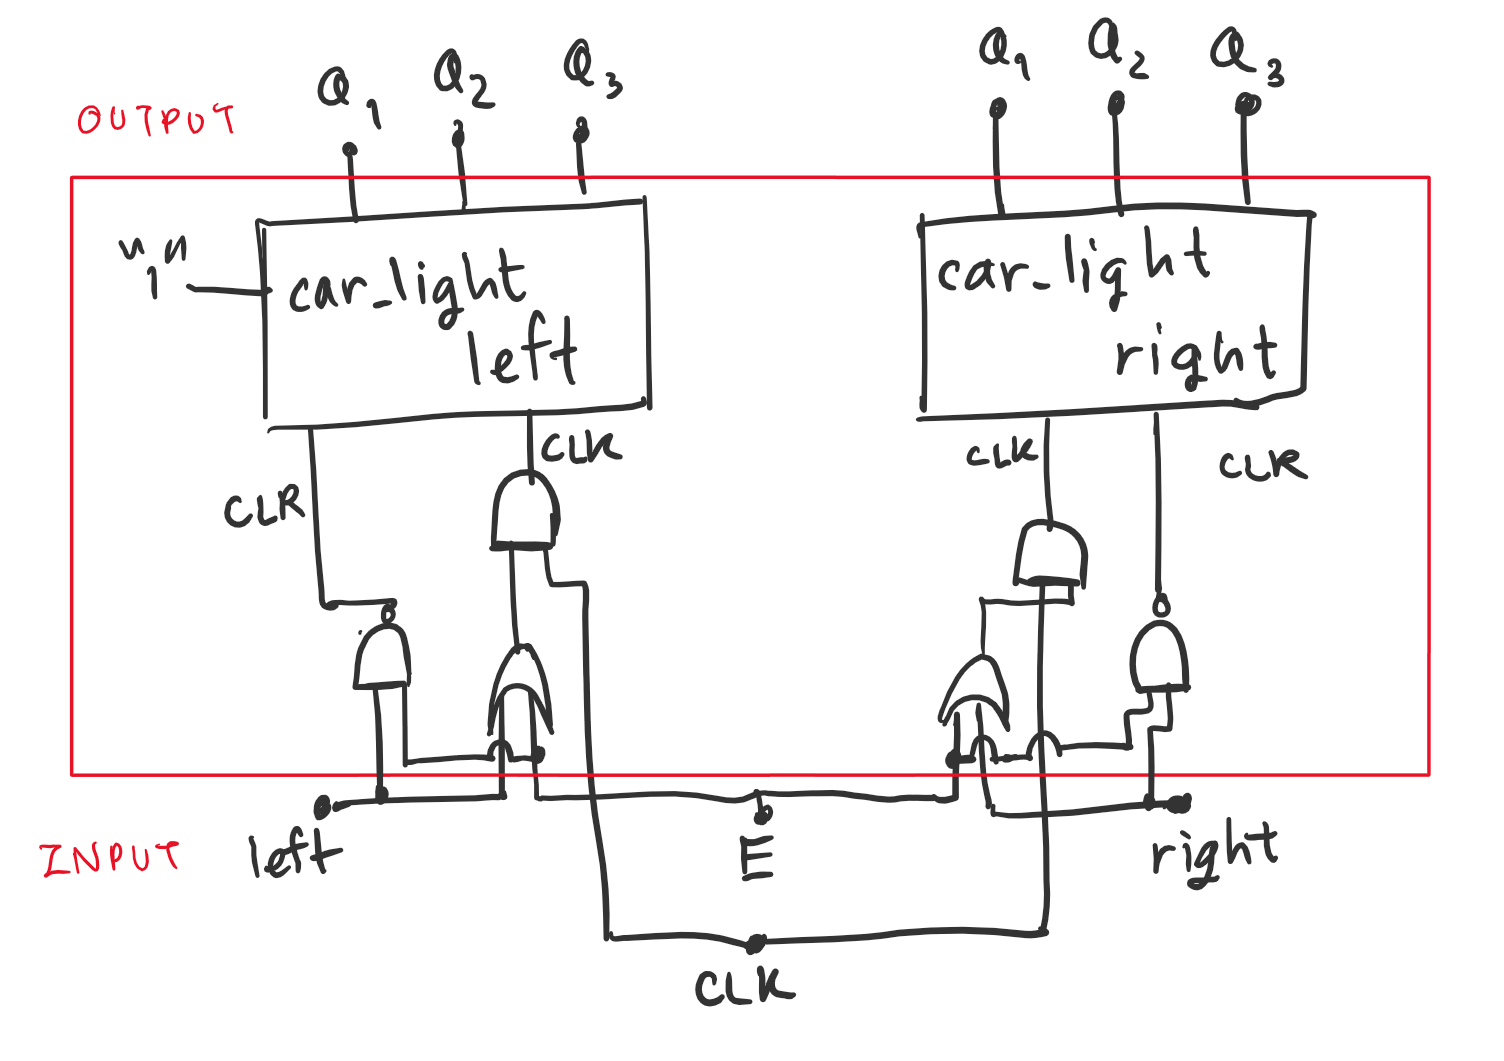 Q1 Q2 Q3
Q1 Q2 Q3
OUTPUT
"1"
car_light
left
car_light
right
CLR
CLK
CLK
CLR
INPUT
left
E
right
CLK